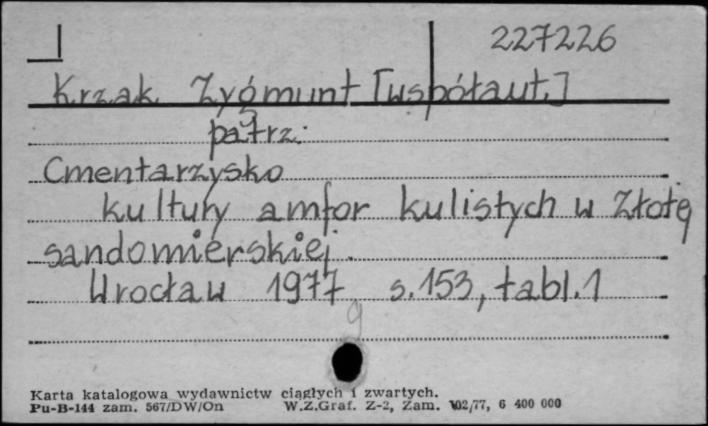 227226
Krzak Zygmunt [współaut.]
patrz:
Cmentarzysko
kultury amfor kulistych w Złotę
sandomierskiej.
Wrocław 1977 s. 153, tabl. 1
g
Karta katalogowa wydawnictw ciągłych i zwartych.
Pu-B-144 zam. 567/DW/On W.Z.Graf. Z-2, Zam. 102/77, 6 400 000